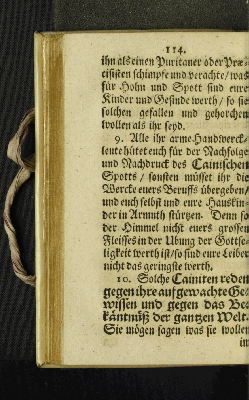 114.
ihn als einen Puritaner oder Præ-
cisisten schimpfe und verachte/ was
für Hohn und Spott sind eure
Kinder und Gesinde werth/ so sie
solchen gefallen und gehorchen
wollen als ihr seyd.
9. Alle ihr arme Handwercks-
leute hütet euch für der Nachfolge
und Nachdruck des Cainischen
Spotts/ sonsten müsset ihr die
Wercke euers Beruffs übergeben/
und euch selbst und eure Hauskin-
der in Armuth stürtzen. Denn so
der Himmel nicht euers grossen
Fleisses in der Ubung der Gottse-
ligkeit werth ist/ so sind eure Leiber
nicht das geringste werth.
10. Solche Cainiten reden
gegen ihre aufgewachte Ge-
wissen und gegen das Be-
käntnüß der gantzen Welt.
Sie mögen sagen was sie wollen
im